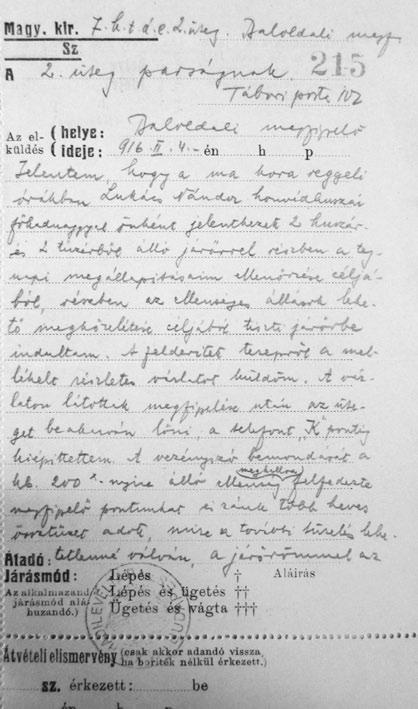 Magy. kir. 7. h. t. á. e. 2. üteg. Baloldali megf.
Sz
A 2. üteg parságnak 215
Tábori posta 102
Az elküldés
helye: Baloldali megfigyelő
ideje: 916. II. 4.-én h p
Jelentem, hogy a ma kora reggeli
órákban Lukács Nándor honvédhuszár
főhadnaggyal önként jelentkezett 2 huszár
és 2 tüzérből álló járőrrel részben a teg-
napi megállapításaim ellenőrzése céljá-
ból, részben az ellenséges állások lehe-
tő megközelítése céljából tiszti járőrbe
indultam. A felderített terepről a mel-
lékelt részletes vázlatot küldöm. A váz-
laton látottak megfigyelése után az üte-
get beakarván lőni, a telefont "K" pontig
kiépíttettem. A vezényszó bemondását a
kb. 200ˣ-nyire álló ellenség meghallva felfedezte
megfigyelő pontunkat és ránk több heves
össztüzet adott, mire a további tüzelés lehe-
tetlenné válván, a járőrömmel az
Átadó: Aláírás
Járásmód: Lépés †
Az alkalmazandó járásmód aláhuzandó.) Lépés és ügetés ††
Ügetés és vágta †††
Átvételi elismervény (csak akkor adandó vissza,
ha boríték nélkül érkezett.)
sz. érkezett: be
én h p